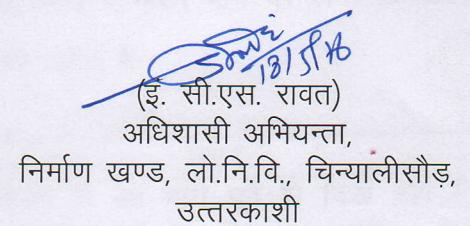 13/5/16
(इ. सी.एस. रावत)
अधिशासी अभियन्ता,
निर्माण खण्ड, लो.नि.वि., चिन्यालीसौड़,
उत्तरकाशी